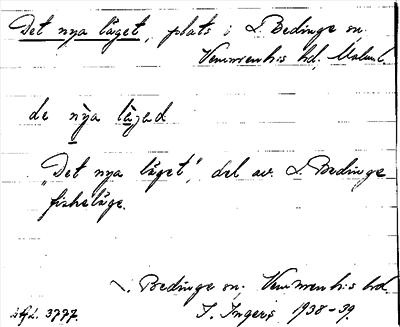 Det nya läget, plats i L. Bedinge sn.
Vemmenhs hd, Malm l.
de nya läjed
"Det nya läget", del av L. Bedinge
fiskeläge.
L. Bedinge sn, Vemmenhs hd.
I. Ingers 1938-39.
3777.